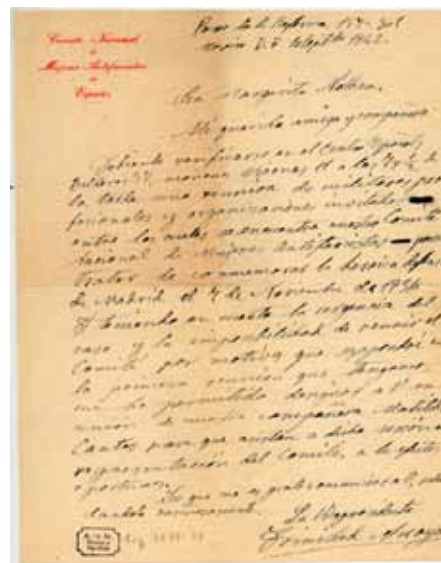 Comité Nacional
de
Mujeres Antifascistas
de
España
Paseo de la Reforma
México D.F.
Sra Margarita Nelken
Mi querida amiga y compañera
Debiendo verificarse en el Centro Español
37, mañana a las 7 y ½ de
la tarde una reunión de militares pro-
fesionales y organizaciones invitadas
entre las cuales se encuentra nuestro Comité
Nacional de Mujeres Antifascistas para
tratar de conmemorar la heroica defensa
de Madrid el 7 de Noviembre de 1936
y teniendo en cuenta la urgencia del
caso y la imposibilidad de reunir el
Comité por motivos que expondré en
la primera reunión que tengamos
me he permitido designar a V. en
unión de nuestra compañera Matilde
Cantos para que asistan a dicha reunión en
representación del Comité, a los efectos
oportunos.
Lo que me es grato comunicar a V.
La Presidenta